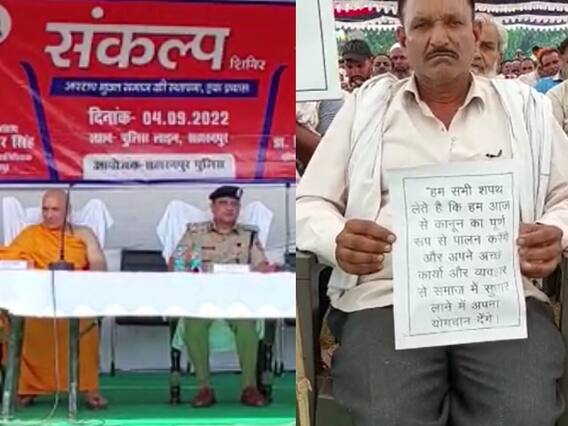 संकल्प शिविर
अपराध मुक्त समाज की स्थापना, एक प्रयास
दिनांक- 04.09.2022
स्थान- पुलिस लाइन, सहारनपुर
र सिंह
डा.
आयोजक-सहारनपुर पुलिस
"हम सभी शपथ
लेते है कि हम आज
से कानून का पूर्ण
रूप से पालन करेंगे
और अपने अच्छे
कार्यो और व्यवहार
से समाज में सुधार
लाने में अपना
योगदान देंगे।